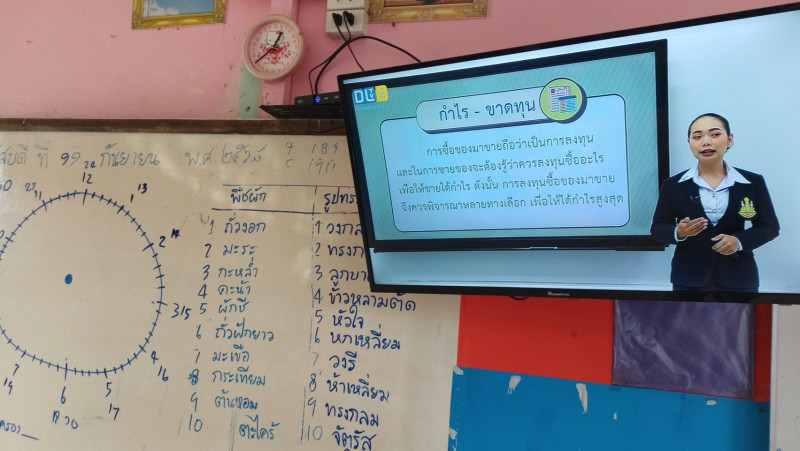 สบดี ที่ ๑๑ กันยายน พ.ศ. ๒๕๖๘
183
191
พืชผัก
1 ถั่วงอก
2 มะระ
3 กะหล่ำ
4 คะน้า
5 ผักชี
6 ถั่วฝักยาว
7 มะเขือ
8 กระเทียม
9 ต้นหอม
10 ตะไคร้
รูปทร
1 วงกล
2 ทรงก
3 ลูกบา
4 ข้าวหลามตัด
5 หัวใจ
6 หกเหลี่ยม
7 วงรี
8 ห้าเหลี่ยม
9 ทรงกลม
10 จัตุรัส
12
13
2
3 15
4
16
5
17
6
7
DLTV
กำไร - ขาดทุน
การซื้อของมาขายถือว่าเป็นการลงทุน
และในการขายของจะต้องรู้ว่าควรลงทุนซื้ออะไร
เพื่อให้ขายได้กำไร ดังนั้น การลงทุนซื้อของมาขาย
จึงควรพิจารณาหลายทางเลือก เพื่อให้ได้กำไรสูงสุด